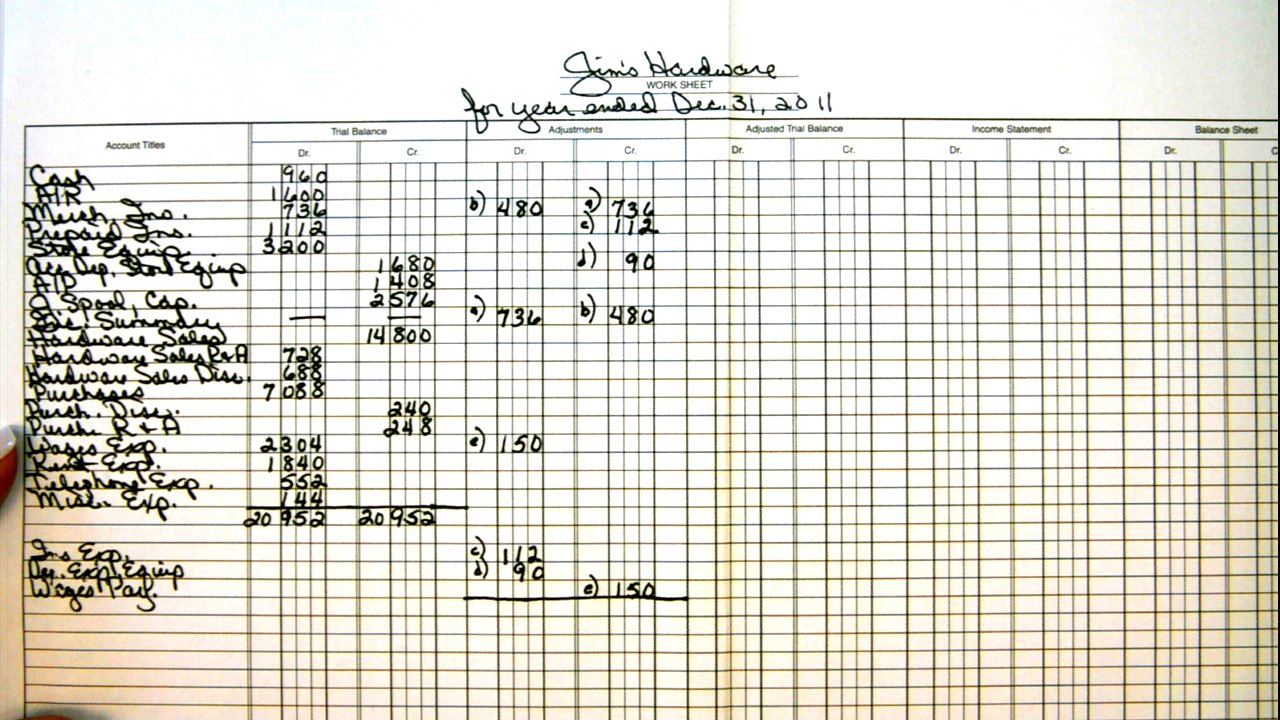 Jim's Hardware
WORK SHEET
for year ended Dec. 31, 2011
Account Titles Trial Balance Adjustments Adjusted Trial Balance Income Statement Balance Sheet
Dr. Cr. Dr. Cr. Dr. Cr. Dr. Cr. Dr. C
Cash 960
A/R 1600
Merch. Inv. 736 b) 480 a) 736
Prepaid Ins. 1112 c) 112
Store Equip. 3200
Acc. Dep. Store Equip 1680 d) 90
A/P 1408
J. Spool, Cap. 2576
Inc. Summary — — a) 736 b) 480
Hardware Sales 14800
Hardware Sales R+A 728
Hardware Sales Disc. 688
Purchases 7088
Purch. Disc. 240
Purch. R + A 248
Wages Exp. 2304 e) 150
Rent Exp. 1840
Telephone Exp. 552
Misc. Exp. 144
20952 20952
Ins Exp. c) 112
Dep. Exp. Equip d) 90
Wages Pay. e) 150